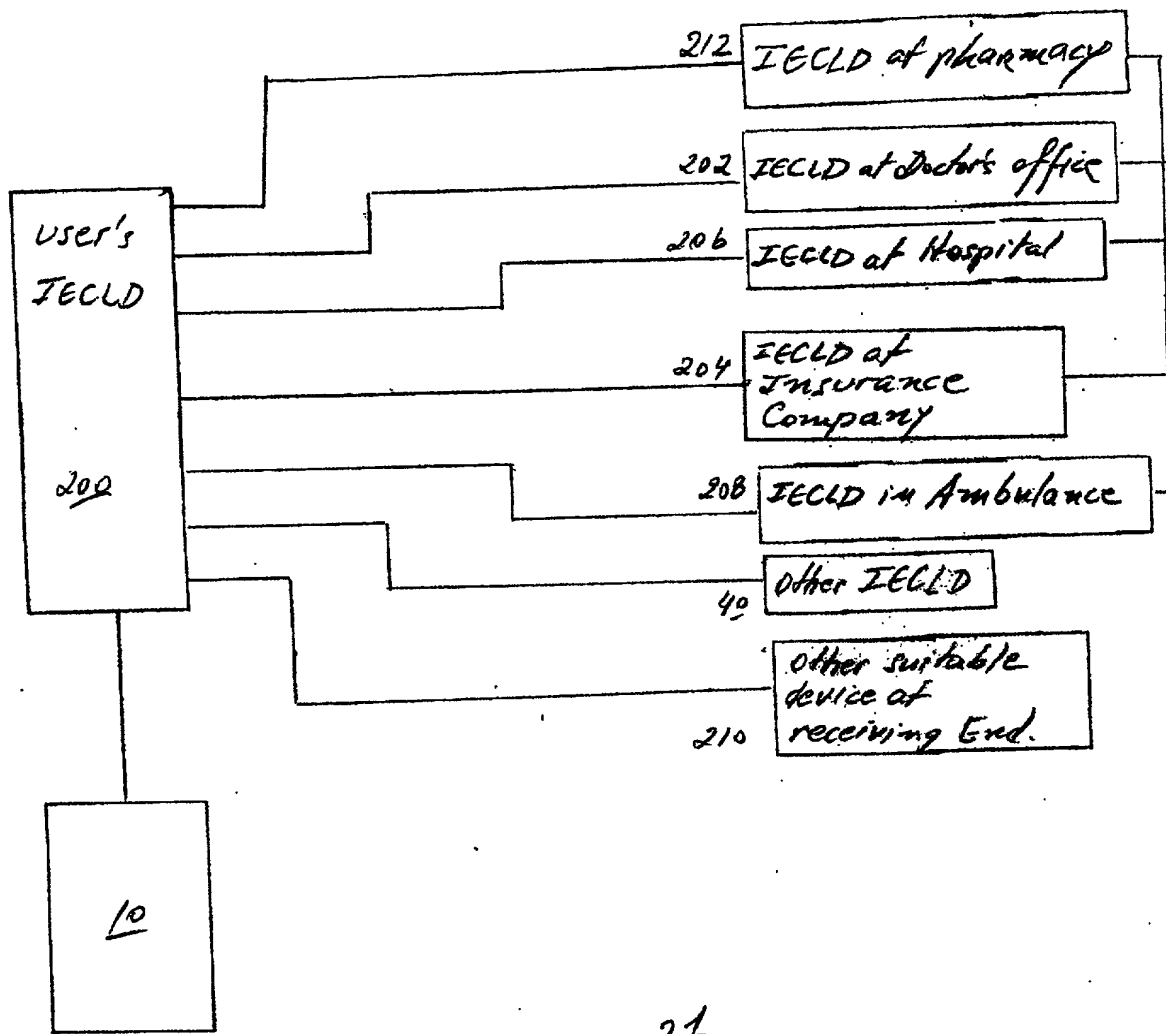 212
IECLD at pharmacy
202
IECLD at Doctor's office
user's
IECLD
200
206
IECLD at Hospital
204
IECLD at
Insurance
Company
208
IECLD in Ambulance
40
Other IECLD
210
Other suitable
device at
receiving End.
10
21